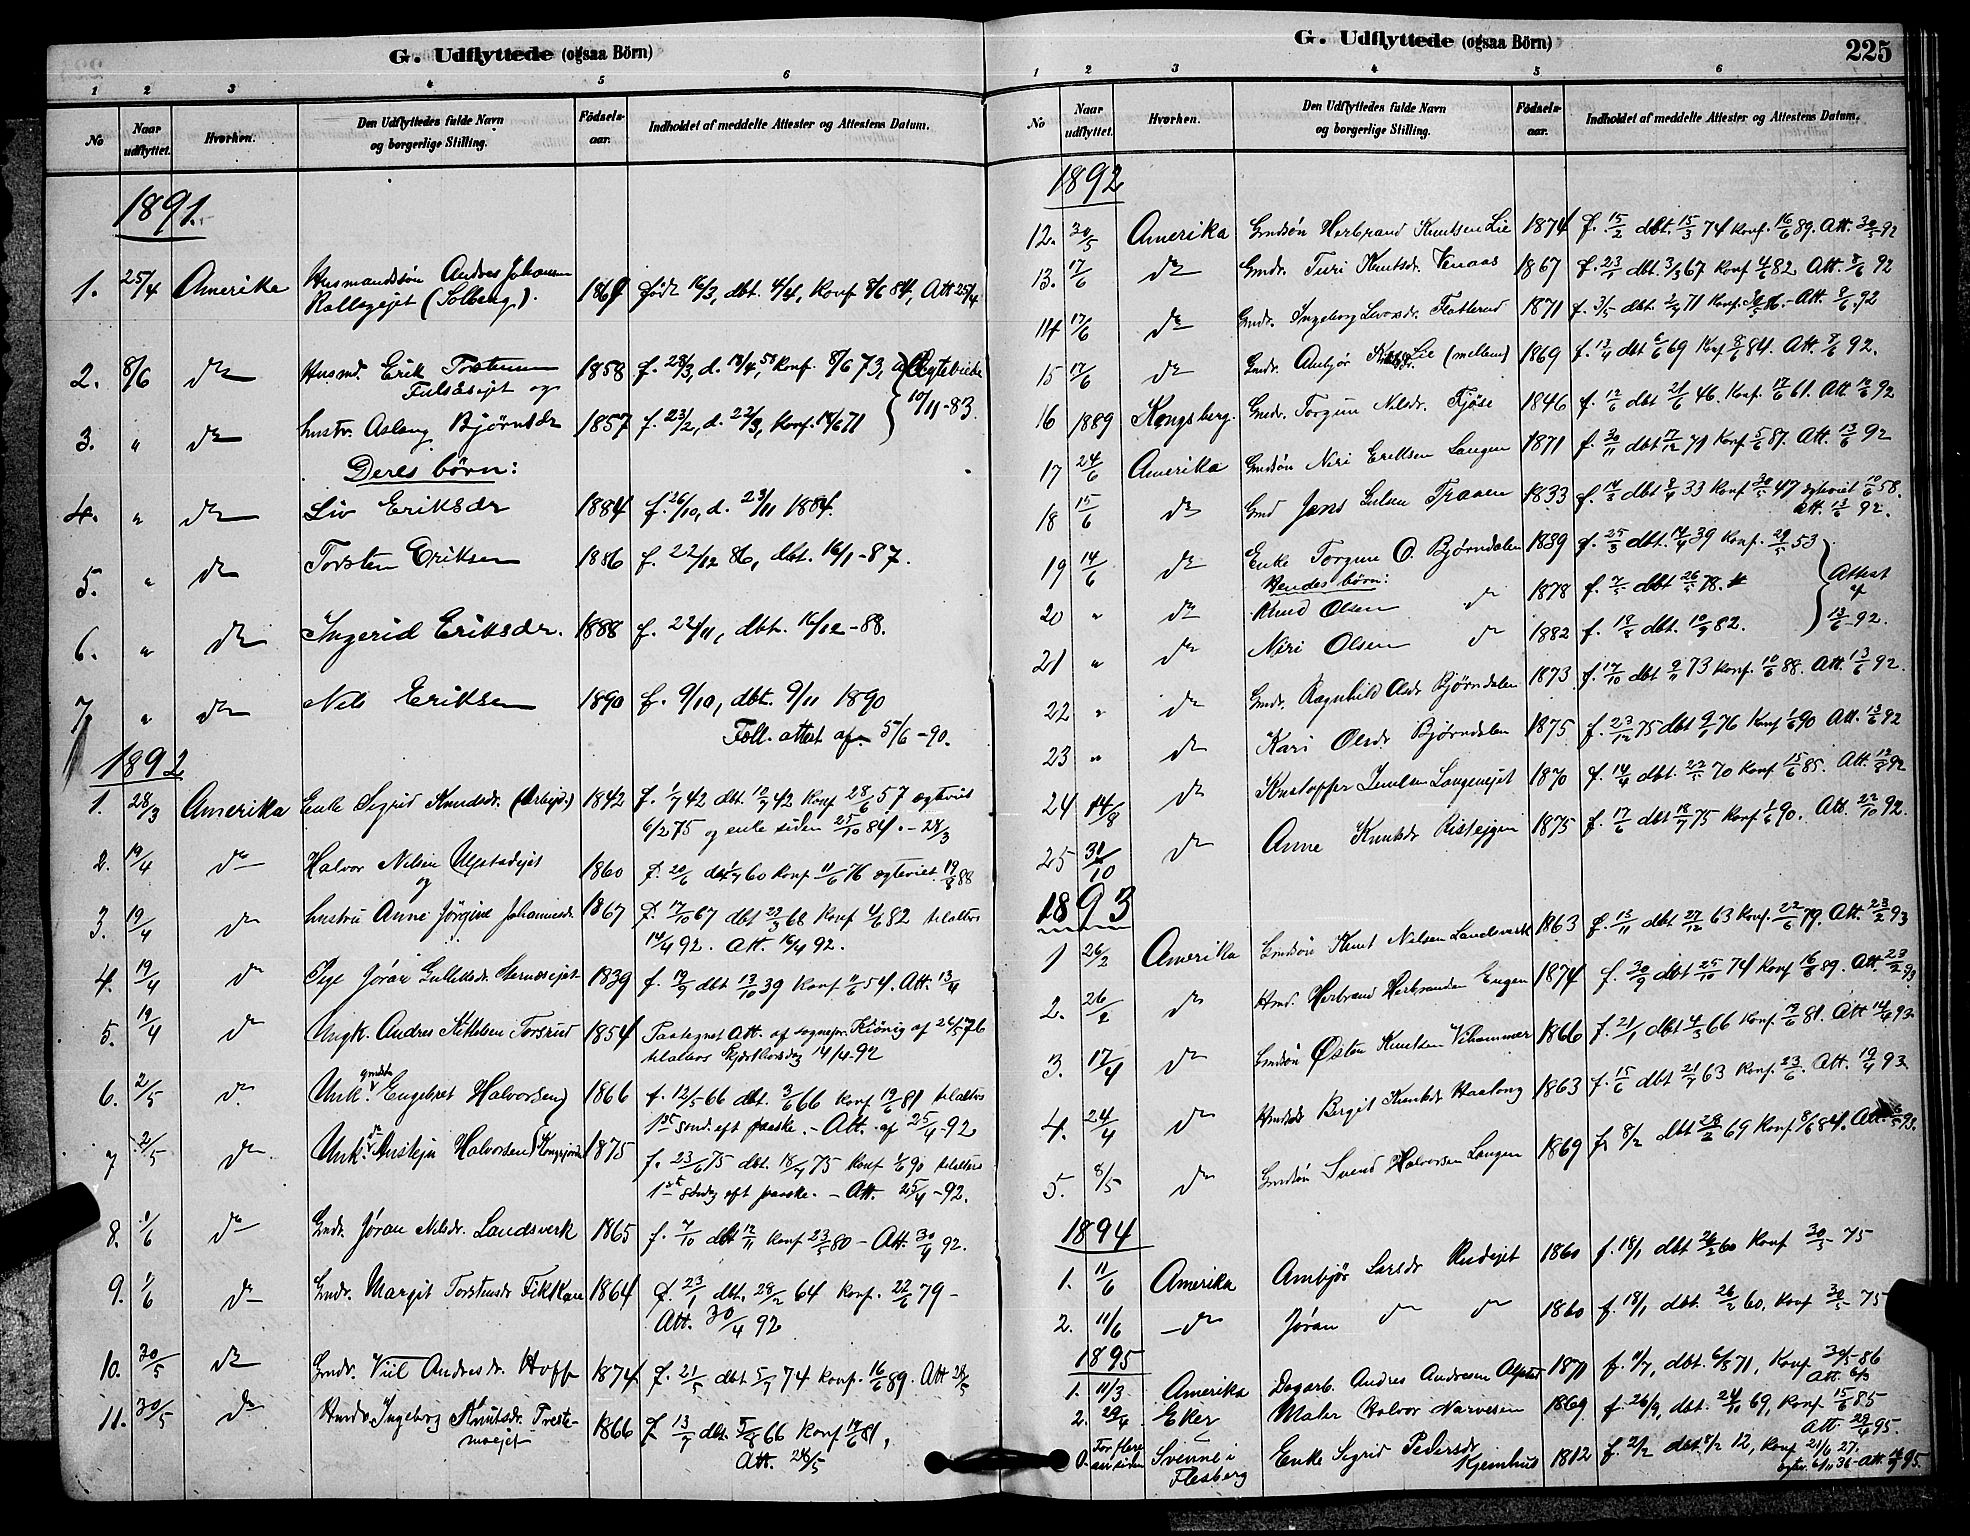 G. Udflyttede (ogsaa Börn)
1 2 3 4 5 6
No
Naar udflyttet.
Hvorhen.
Den Udflyttedes fulde Navn og borgerlige Stilling.
Födsels-aar.
Indholdet af meddelte Attester og Attestens Datum.
1891.
1. 25/4 Amerika Husmandssön Andres Johansen
(Solberg). født 16/3, dbt. 4/4, Konf 8/6 84, Att 25/4
2. 8/6 do Husmd. Erik Torstensen 1858 f. 28/3, d. 18/4 58, Konf. 8/6 73,
og 10/11-83.
3. " do hustr. Aslaug Bjørnsdr 1857 f. 23/2, d. 22/3, Konf. 18/6 71
Deres börn:
4. " do Liv Eriksdr 1884 f. 26/10, d. 23/11 1884.
5. " do Torsten Eriksen 1886 f. 22/12 86, dbt. 16/1-87.
6. " do Ingerid Eriksdr. 1888 f. 22/11, dbt. 16/12-88.
7. " do Nils Eriksen 1890 f. 9/10, dbt. 9/11 1890
attest af 5/6-90.
1892
1. 28/3 Amerika Enke Sigrid Knudsdr. 1842 f. 1/7 42 dbt. 10/7 42 Konf 28/6 57 egteviet
6/2 75 og enke siden 25/10 84. - 28/3
2. 19/4 do Halvor Nilsen 1860 f. 20/6 60 Konf 11/6 76 egteviet 19/8 88
og
3. 19/4 do hustru Anne Jörgine Johannesdr 1867 f. 17/10 67 dbt 22/3 68 Konf 4/6 82
14/4 92. Att. 16/4 92.
4. 19/4 do Pige Jöran Gullliksdr. 1839 f. 19/9 dbt 13/10 39 Konf 11/6 54. Att. 13/4
5. 19/4 do Ungk. Andres Kittelsen Torsrud 1854 Paategnet Att. af sognepr. Kiönig af 26/5 76
Skjærtorsdag 14/4-92
6. 2/5 do Ungk. Engebret Halvorsen 1866 f. 12/5 66 dbt. 3/6 66 Konf 19/6 81
1ste sönd. eft paaske. - Att. af 25/4-92
7 2/5 do Halvorsen 1875 f. 23/6 75 dbt. 18/7 75 Konf 1/6 90
1ste söndag eft paaske. - Att. 25/4-92.
8. 1/6 do Gmdr. Jöran Nilsdr. Landsverk 1865 f. 7/10 dbt 12/11 Konf 23/5 80 - Att. 30/4 92.
9. 1/6 do Gmdr. Margit Torstensdr Fekkan 1864 f. 23/1 dbt. 28/2 64 Konf. 22/6 79 -
Att. 30/4 92
10. 30/5 do Gmdr. Viil Andresdr. Hoff 1874 f. 21/5 dbt 5/7 74 Konf. 16/6 89. Att 28/5
11. 30/5 do Ingeborg Knutsdr. Preste-
moejet 1866 f. 13/7 dbt. 5/8 66 Konf 19/6 81,
Att. 28/5
G. Udflyttede (ogsaa Börn)
225
1 2 3 4 5 6
No
Naar udflyttet.
Hvorhen.
Den Udflyttedes fulde Navn og borgerlige Stilling.
Födsels-aar.
Indholdet af meddelte Attester og Attestens Datum.
1892
12. 30/5 Amerika Gmdsön Herbrand Knutsen Lie 1874 f. 15/2 dbt. 15/3 74 Konf. 16/6 89. Att. 30/5 92
13. 17/6 do Gmdr. Turi Knutsdr. Venaas 1867 f. 23/1 dbt. 3/3 67 Konf 4/6 82 Att. 8/6 92
14 17/6 do Gmdr. Ingeborg Flatterud 1871 f. 3/5 dbt. 2/7 71 Att. 8/6 92
15 17/6 do Gmdr. Ambjör Lie (mellem) 1869 f. 13/4 dbt 6/6 69 Konf 8/6 84. Att. 8/6 92.
16 1889 Kongsberg. Gmdr. Torgun Nilsdr. Fjöse 1846 f. 12/6 dbt 21/6 46. Konf. 12/6 61. Att 12/6 92
17 24/6 Amerika Gmdsön Niri Eriksen Langen 1871 f. 30/11 dbt 17/12 71 Konf 5/6 87. Att. 13/6 92
18 15/6 do Gmd Jens Traaen 1833 f. 14/3 dbt 8/4 33 Konf 30/5 47 egteviet 10/6 58.
Att. 13/6 92.
19 14/6 do Enke Torgun O. Bjørndalen 1839 f. 25/3 dbt. 14/4 39 Konf. 29/5 53
Hendes børn:
20 " do Knud Olsen do 1878 f. 7/5 dbt 26/5 78. Attest
af
21 " do Niri Olsen do 1882 f. 18/8 dbt. 10/9 82. 13/6-92.
22 " do Gmdr. Ragnhild Olsdr Bjørndalen 1873 f. 17/10 dbt 9/11 73 Konf. 10/6 88. Att. 13/6 92.
23 " do Kari Olsdr Bjørndalen 1875 f. 23/12 75 dbt 9/1 76 Konf 1/6 90 Att. 13/6 92
24 14/8 do Kristoffer Langenejet 1870 f. 14/4 dbt. 22/5 70 Konf 15/6 85. Att. 12/8 92
25 31/10 do Anne Knutsdr 1875 f. 17/6 dbt 18/7 75 Konf 1/6 90. Att. 22/10 92.
1893
1 26/2 Amerika Gmdsön Knut Nilsen Landsverk 1863 f. 13/11 dbt 27/12 63 Konf. 22/6 79. Att. 23/2 93
2. 26/2 do Herbrand Herbrandsen Engen 1874 f. 30/9 dbt 25/10 74 Konf 16/6 89. Att. 23/2 93
3. 17/4 do Gmdsön Østen Knutsen Vihammer 1866 f. 21/1 dbt 4/3 66 Konf 19/6 81. Att 14/4 93.
4. 24/4 do Bergit Knutsdr 1863 f. 15/6 dbt 21/7 63 Konf. 23/6. Att. 19/4 93
5. 8/5 do Gmdsön Svend Halvorsen Langen 1869 f. 8/2 dbt 28/2 69 Konf 8/6 84. Att. 93.
1894
1. 11/6 Amerika Ambjör Larsdr Rudsejet 1860 f. 18/1 dbt 26/2 60 Konf 30/5-75
2. 11/6 - do Jöran do do 1860 f. 18/1 dbt. 26/2 60, Konf 30/5-75
1895
1. 11/3 Amerika Dagarb. Andres Andresen 1871 f. 11/7, dbt. 6/8 71, Konf 30/5-86
Att. 6/3
2. 29/4 Eker Maler Halvor Narvesen 1869 f. 26/9, dbt. 24/10 69, Konf 15/6 85
Att 29/4 95.
0. For flere aar siden Svenne i Flesberg Enke Sigrid Pedersdr Kjemhus 1812 f. 2/2 dbt. 12, Konf 21/6 27.
egtev. 6/11 36-Att. 95.